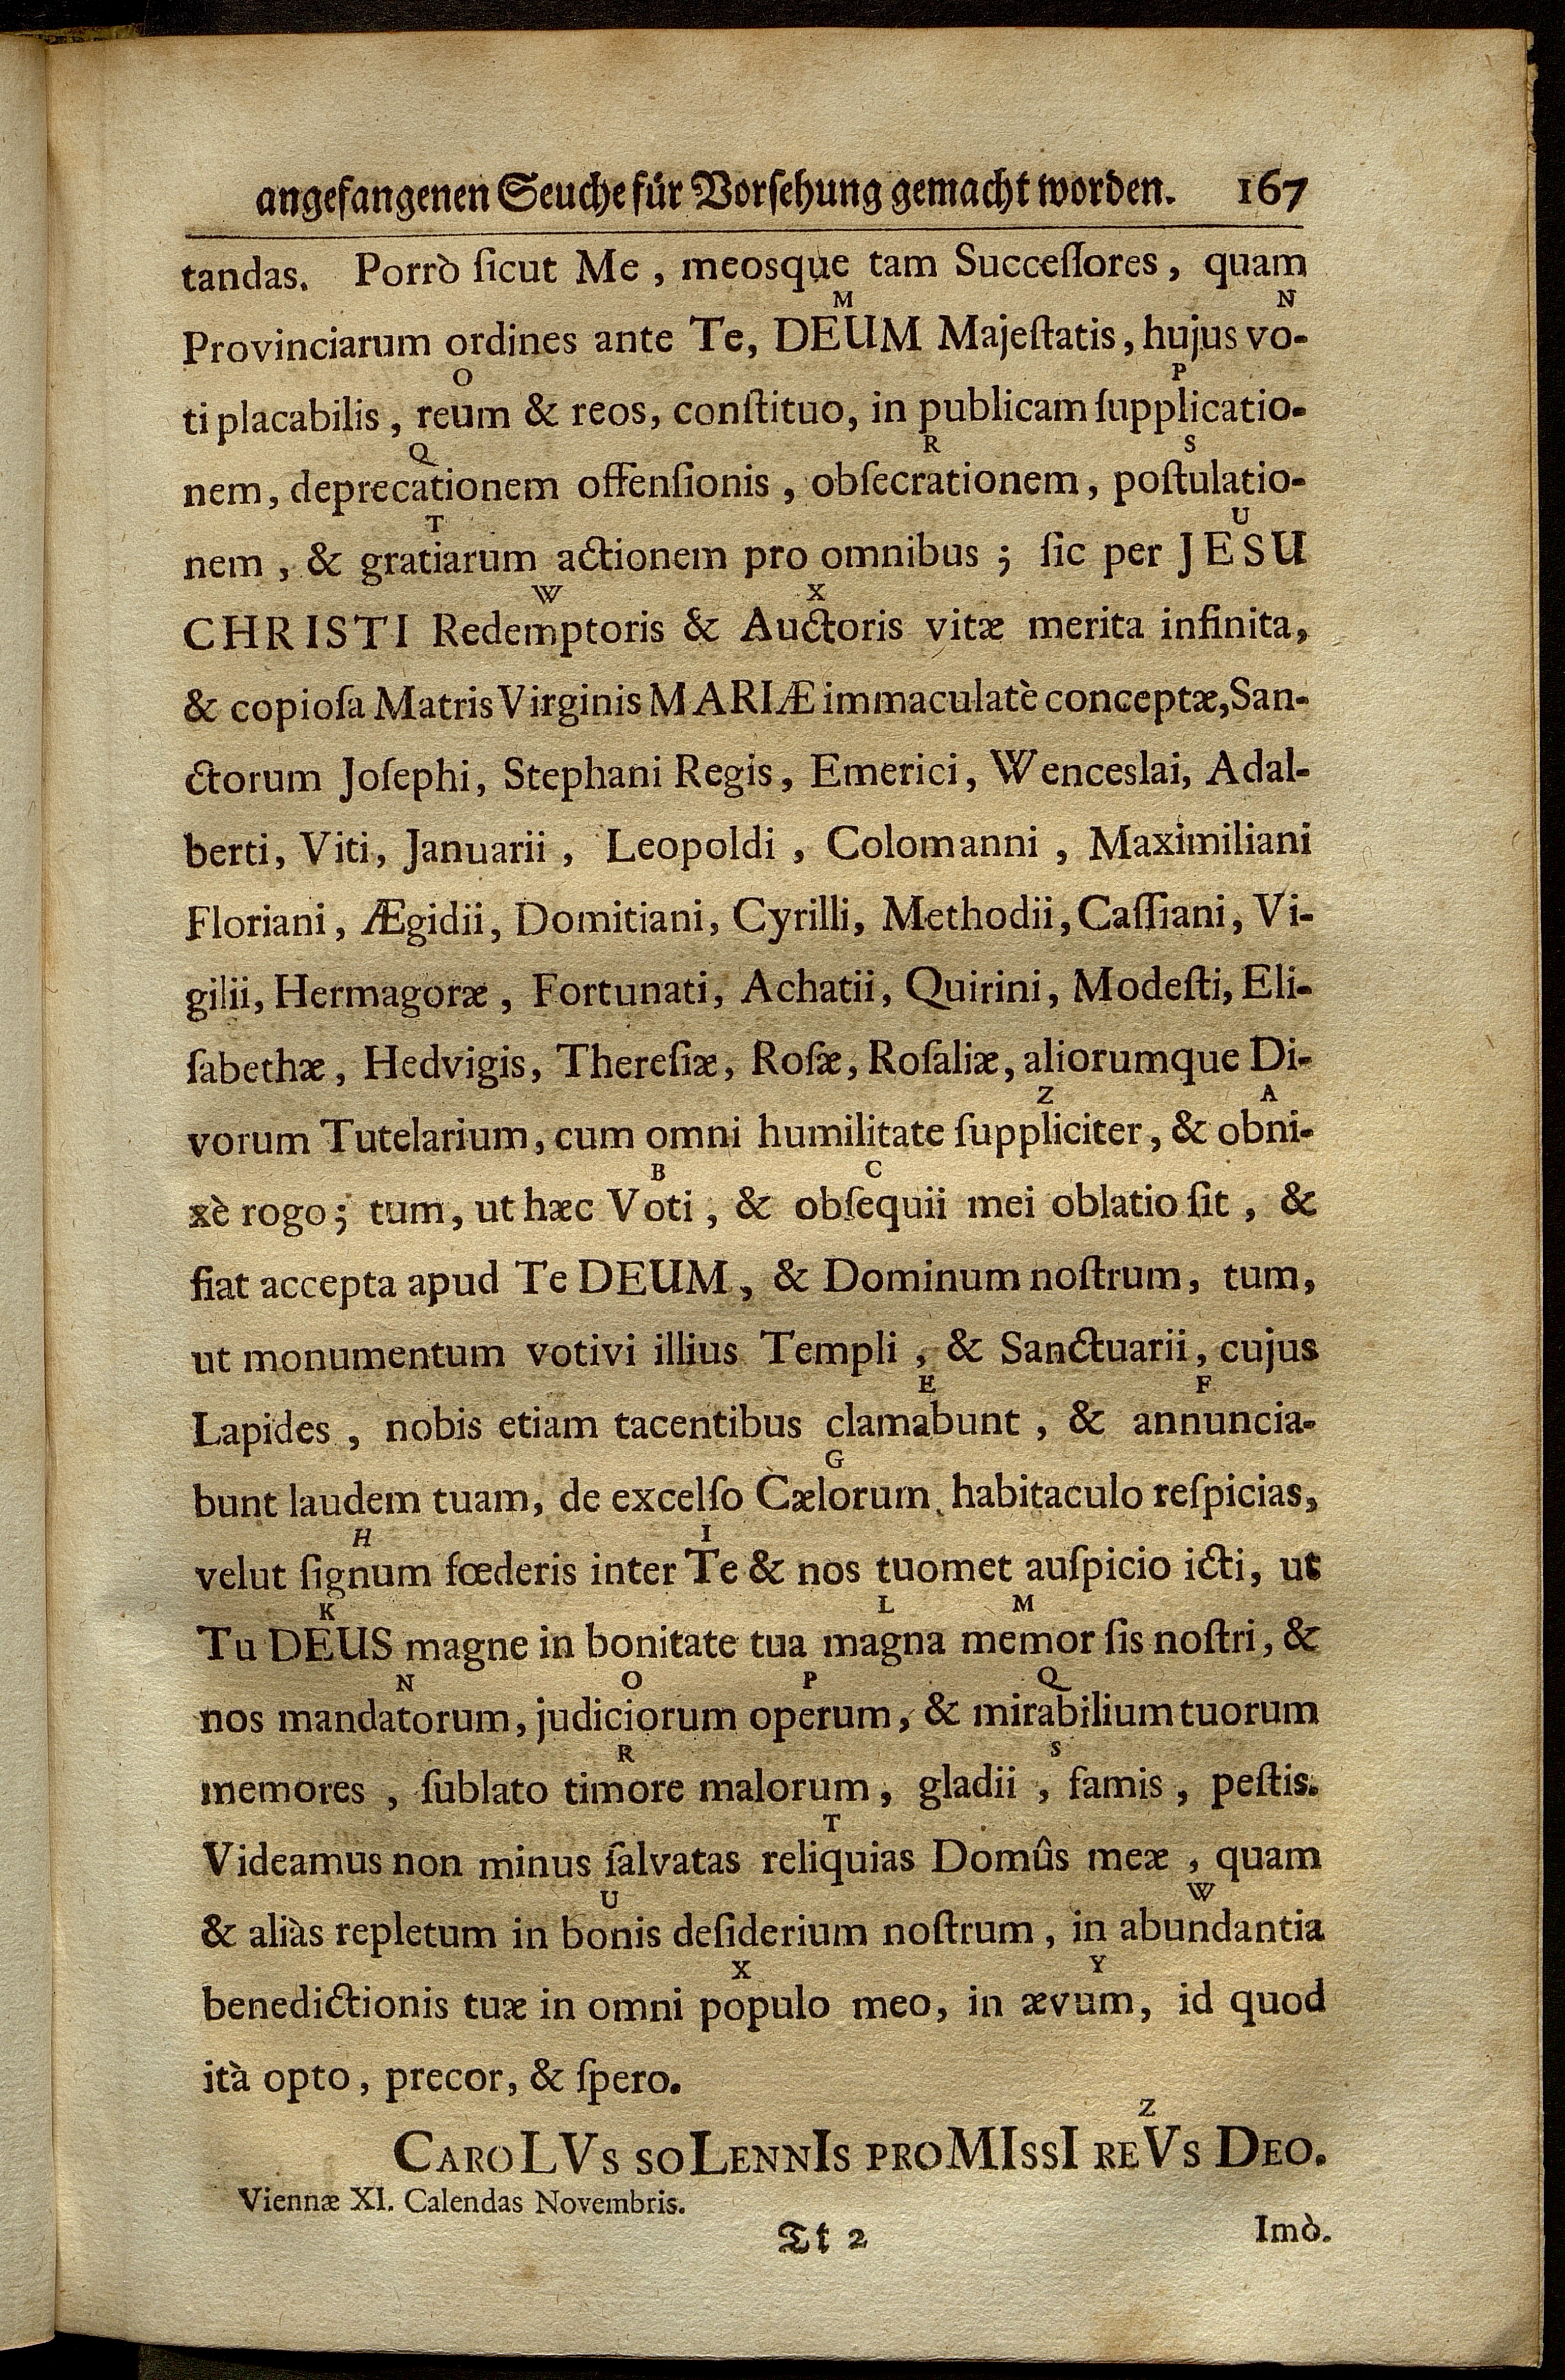 angefangenen Seuche für Vorsehung gemacht worden. 167
tandas. Porrò ſicut Me, meosque tam Succeſſores, quam
M N
Provinciarum ordines ante Te, DEUM Majeſtatis, hujus vo-
O P
ti placabilis, reum & reos, conſtituo, in publicam ſupplicatio-
Q R S
nem, deprecationem offenſionis, obſecrationem, poſtulatio-
T U
nem, & gratiarum actionem pro omnibus; ſic per JESU
W X
CHRISTI Redemptoris & Auctoris vitæ merita infinita,
& copioſa Matris Virginis MARIÆ immaculatè conceptæ, San-
ctorum Joſephi, Stephani Regis, Emerici, Wenceslai, Adal-
berti, Viti, Januarii, Leopoldi, Colomanni, Maximiliani
Floriani, Ægidii, Domitiani, Cyrilli, Methodii, Caſſiani, Vi-
gilii, Hermagoræ, Fortunati, Achatii, Quirini, Modeſti, Eli-
ſabethæ, Hedvigis, Thereſiæ, Roſæ, Roſaliæ, aliorumque Di-
Z A
vorum Tutelarium, cum omni humilitate ſuppliciter, & obni-
B C
xè rogo; tum, ut hæc Voti, & obſequii mei oblatio ſit, &
fiat accepta apud Te DEUM, & Dominum noſtrum, tum,
ut monumentum votivi illius Templi, & Sanctuarii, cujus
E F
Lapides, nobis etiam tacentibus clamabunt, & annuncia-
G
bunt laudem tuam, de excelſo Cælorum habitaculo reſpicias,
H I
velut ſignum fœderis inter Te & nos tuomet auſpicio icti, ut
K L M
Tu DEUS magne in bonitate tua magna memor ſis noſtri, &
N O P Q
nos mandatorum, judiciorum operum, & mirabilium tuorum
R S
memores, ſublato timore malorum, gladii, famis, peſtis.
T
Videamus non minus ſalvatas reliquias Domûs meæ, quam
U W
& aliàs repletum in bonis deſiderium noſtrum, in abundantia
X Y
benedictionis tuæ in omni populo meo, in ævum, id quod
ità opto, precor, & ſpero.
Z
CAROLVS SOLENNIS PROMISSI REVS DEO.
Viennæ XI. Calendas Novembris.
Tt 2 Imò.